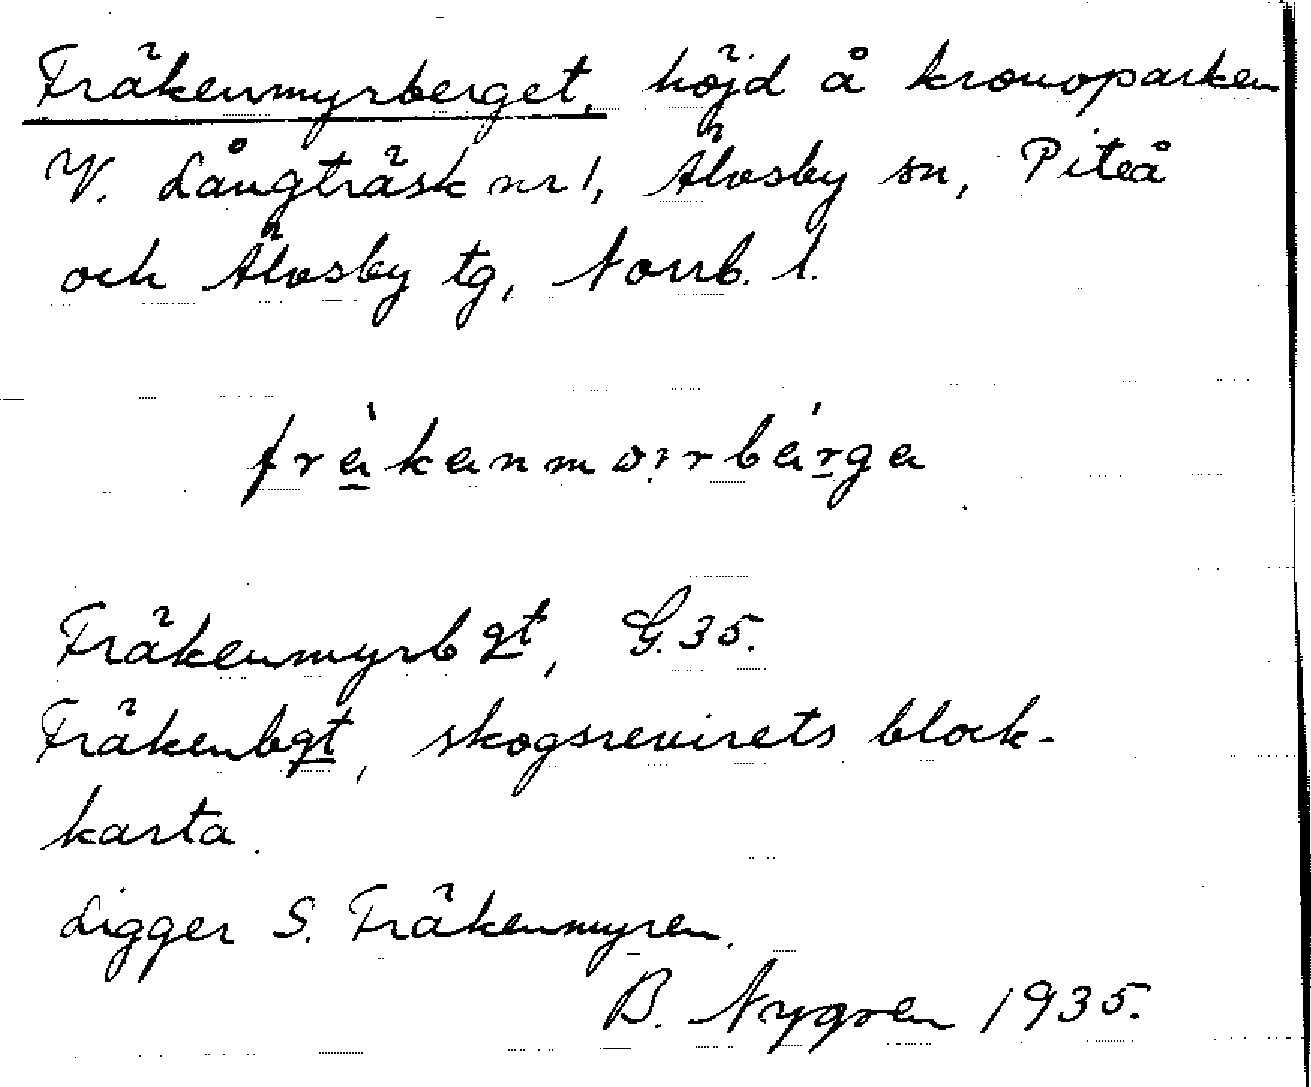 Fräkenmyrberget, höjd å kronoparken
V. Långträsk nr 1, Älvsby sn, Piteå
och Älvsby tg, Norrb. l.
Fräkenmyrbgt, G. 35.
Fräkenbgt, skogsrevirets block-
karta.
Ligger S. Fräkenmyren.
B. Nygren 1935.